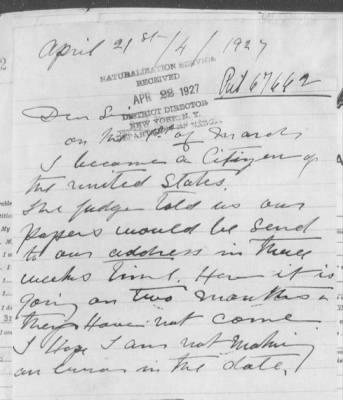 April 21st/4/1927
NATURALIZATION SERVICE
RECEIVED
APR 22 1927
DISTRICT DIRECTOR
NEW YORK, N. Y.
DEPARTMENT OF LABOR
Pet 67662
Dear Sir
on the of March
I became a Citizen of
the united States.
The judge told us our
papers would be send
to our address in three
weeks time. Here it is
going on two months &
they Have not come
I Hope I am not making
an error in the date,